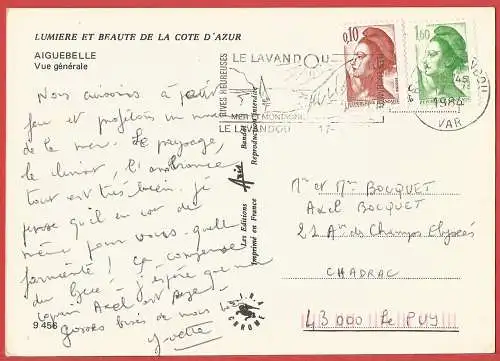 LUMIERE ET BEAUTE DE LA COTE D'AZUR
AIGUEBELLE
Vue générale
Nous avissons à petit
feu et profitons un max
de la mer. Le paysage,
le climat, l'ambiance
tout est très bien. Je
pense qu'il en est de
même pour vous. quelle
! ça change
du lycée - j'espère que mon
copain Axel est sage.
Grosses bises de nous
Yvette
9 456
RIVES HEUREUSES
LE LAVANDOU
MER ET MONTAGNE
LE LAVANDOU 17-
0,10
1,60
1984
VAR
Les Editions Aris Bandol
Imprimé en France Reproduction Interdite
CHROME
Mr et Mme BOCQUET
Axel BOCQUET
21 Av. des Champs Elysées
CHADRAC
43000 Le PUY